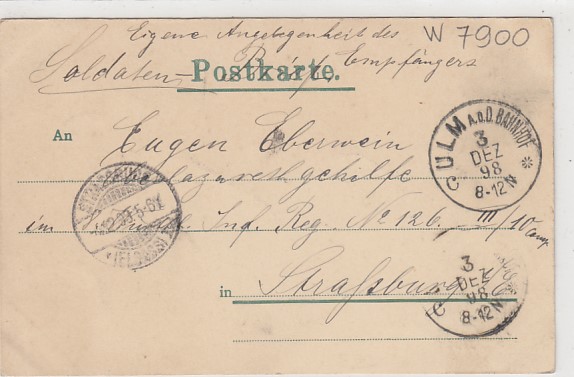 W 7900
Eigene Angelegenheit des
Soldaten- Brief Empfängers
Postkarte.
An Eugen Eberwein
Lazarethgehilfe
im Inf. Reg. No 126, III/10 Comp
in Strassburg i/E
CULM A.D. BAHNHOF
3
DEZ
98
8-12N
3
DEZ
98
8-12N
(ELSASS)